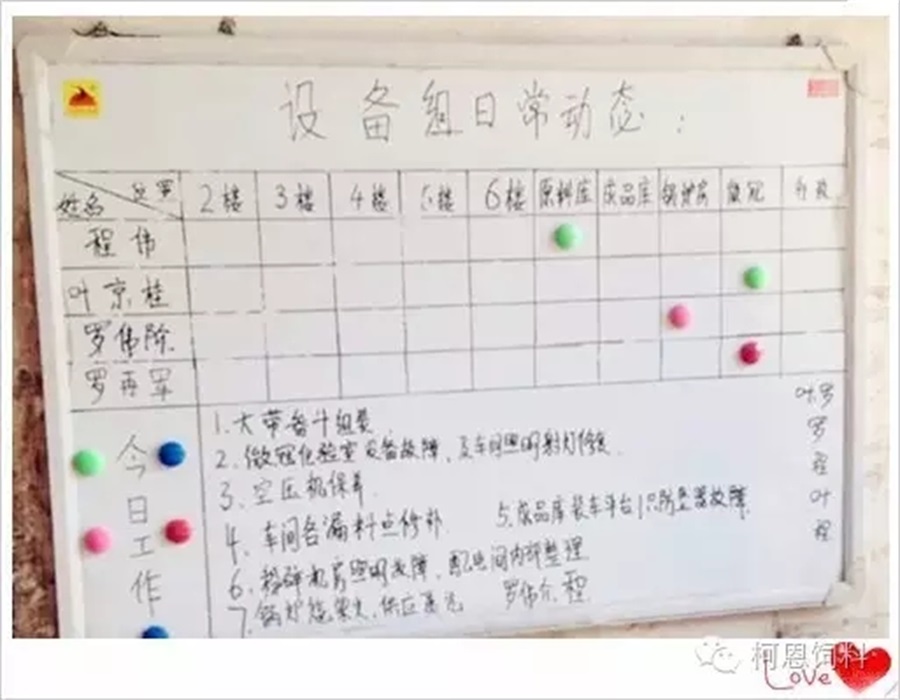 设备组日常动态：
姓名 2楼 3楼 4楼 5楼 6楼 原料库 成品库 锅炉房 微冠
程伟
叶京桂
罗伟阶
罗再军
今日工作
1.大带备件组装 叶罗
2.微冠化验室设备故障，及车间照明射灯修复 罗
3.空压机保养 程
4.车间各漏料点修补 5.成品库装车平台1只防坠器故障 叶
程
6.粉碎机房照明故障，配电间内部整理
7.锅炉 罗伟 程
柯恩饲料
Love